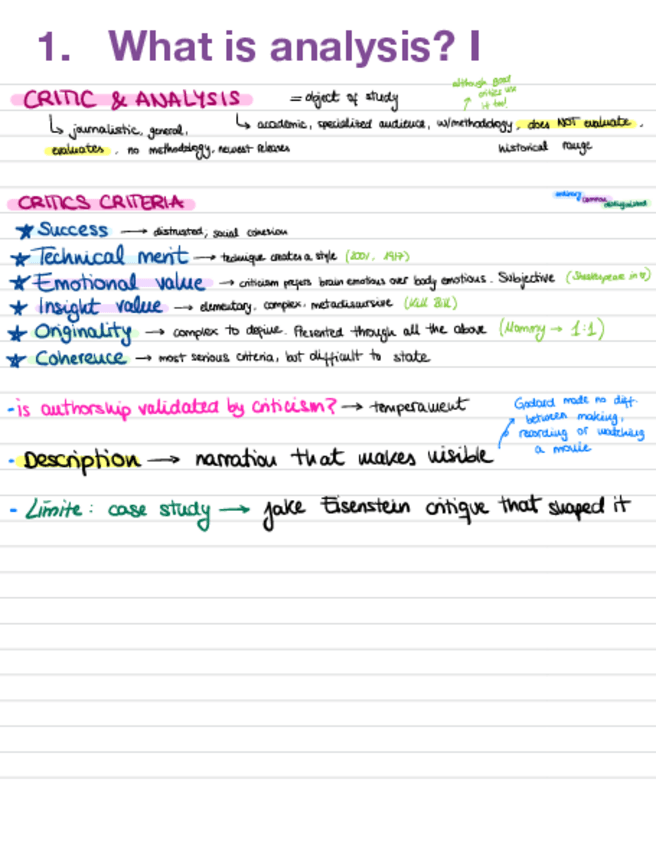 1. What is analysis? I
although good
critics use
it too!
CRITIC & ANALYSIS = object of study
↳ journalistic, general,
evaluates, no methodology, newest releases
↳ academic, specialized audience, w/methodology, does NOT evaluate.
historical range
CRITICS CRITERIA
ordinary
common
distinguished
★ Success → distrusted, social cohesion
★ Technical merit → technique creates a style (2001, 1917)
★ Emotional value → criticism prefers brain emotions over body emotions. Subjective (Shakespeare in ♡)
★ Insight value → elementary, complex, metadiscursive (Kill Bill)
★ Originality → complex to define. Presented through all the above (Mommy → 1:1)
★ Coherence → most serious criteria, but difficult to state
- is authorship validated by criticism? → temperament
Godard made no diff.
between making,
recording or watching
a movie
- Description → narration that makes visible
- Limite: case study → fake Eisenstein critique that shaped it